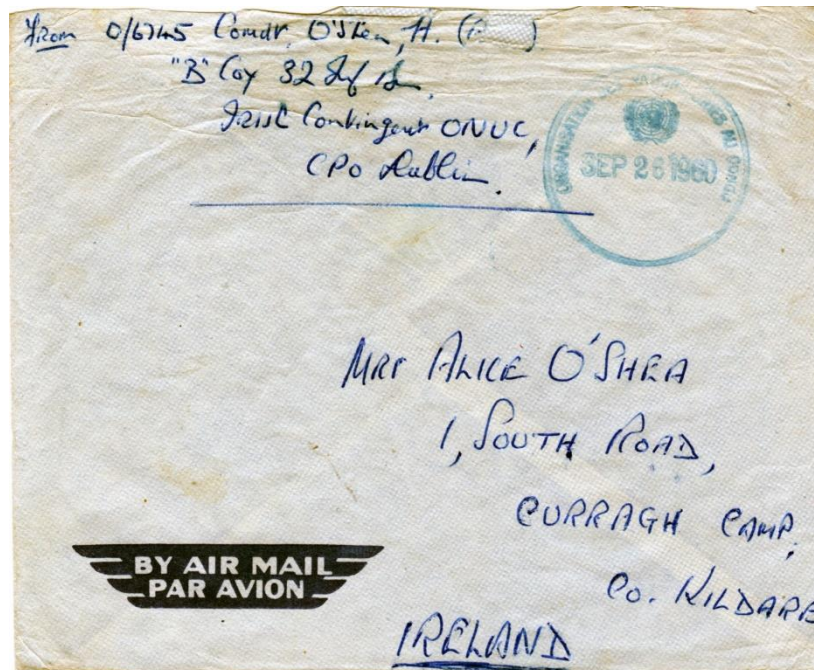 From O/6745 Comdt. O'Shea, H.
"B" Coy 32 Inf Bn,
Irish Contingent ONUC,
CPO Dublin.
ORGANISATION DES NATIONS UNIES AU CONGO
SEP 26 1960
MRS ALICE O'SHEA
1, SOUTH ROAD,
CURRAGH CAMP,
CO. KILDARE
IRELAND
BY AIR MAIL
PAR AVION